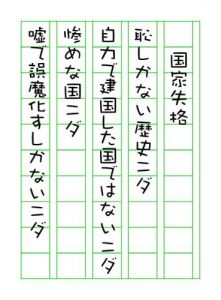 国家失格
恥しかない歴史ニダ
自力で建国した国ではないニダ
惨めな国ニダ
嘘で誤魔化すしかないニダ